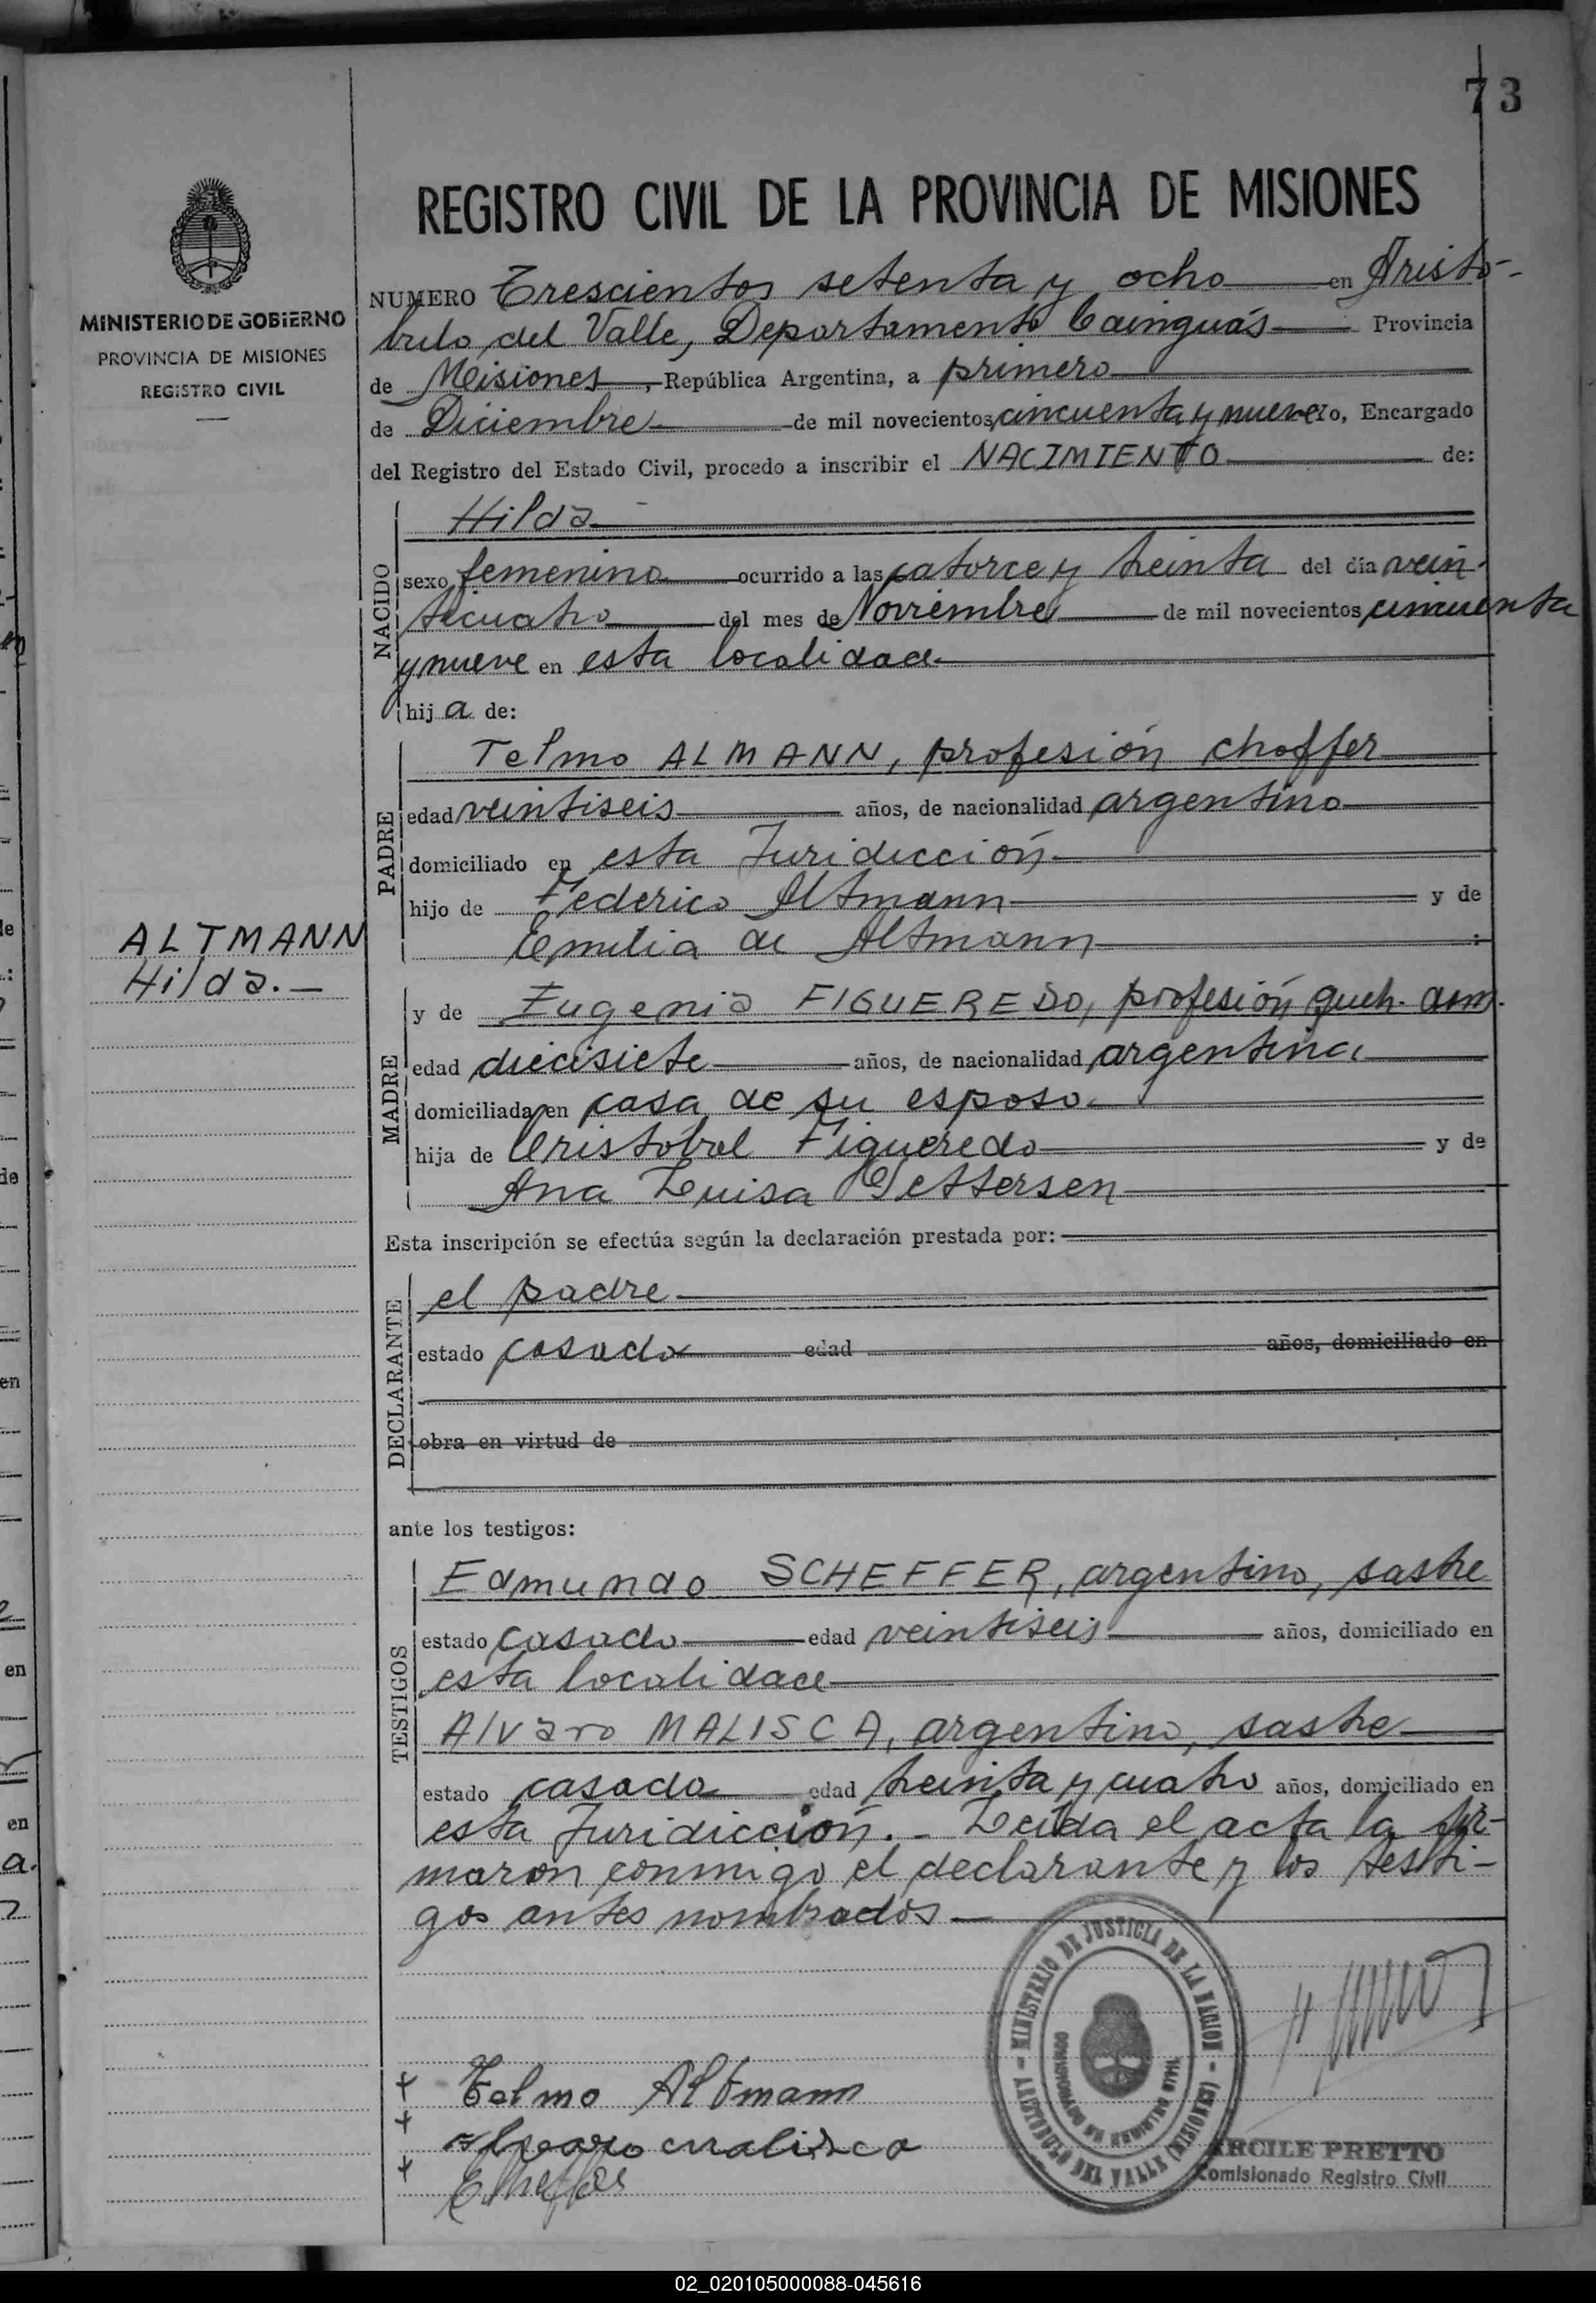 73
REGISTRO CIVIL DE LA PROVINCIA DE MISIONES
MINISTERIO DE GOBIERNO
PROVINCIA DE MISIONES
REGISTRO CIVIL
NUMERO Trescientos setenta y ocho en Aristó-
bulo del Valle, Departamento Cainguás Provincia
de Misiones, República Argentina, a primero
de Diciembre de mil novecientos cincuenta y nueve yo, Encargado
del Registro del Estado Civil, procedo a inscribir el NACIMIENTO de:
NACIDO
Hilda
sexo femenino ocurrido a las catorce y treinta del día vein-
ticuatro del mes de Noviembre de mil novecientos cincuenta
y nueve en esta localidad
hija de:
PADRE
Telmo ALMANN, profesión choffer
edad veintiseis años, de nacionalidad argentino
domiciliado en esta Juridicción
hijo de Federico Altmann y de
Emilia de Altmann
ALTMANN
Hilda.-
MADRE
y de Eugenia FIGUEREDO, profesión queh. dom.
edad diecisiete años, de nacionalidad argentina
domiciliada en casa de su esposo
hija de Cristóbal Figueredo y de
Ana Luisa Pettersen
Esta inscripción se efectúa según la declaración prestada por:
DECLARANTE
el padre
estado casado edad años, domiciliado en
obra en virtud de
ante los testigos:
TESTIGOS
Edmundo SCHEFFER, argentino, sastre
estado casado edad veintiseis años, domiciliado en
esta localidad
Alvaro MALISCA, argentino, sastre
estado casado edad treinta y cuatro años, domiciliado en
esta Juridicción.- Leída el acta la fir-
maron conmigo el declarante y los testi-
gos antes nombrados.-
MINISTERIO DE JUSTICIA DE LA NACION - ARISTOBULO DEL VALLE (MISIONES) -
COMISIONADO DE REGISTRO CIVIL
Telmo Altmann
Alvaro Malisca
EScheffer
ARCILE PRETTO
Comisionado Registro Civil
02_020105000088-045616